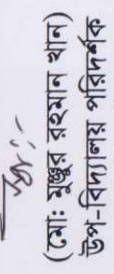 স্বাঃ-
(মোঃ মুঞ্জুর রহমান খান)
উপ-বিদ্যালয় পরিদর্শক